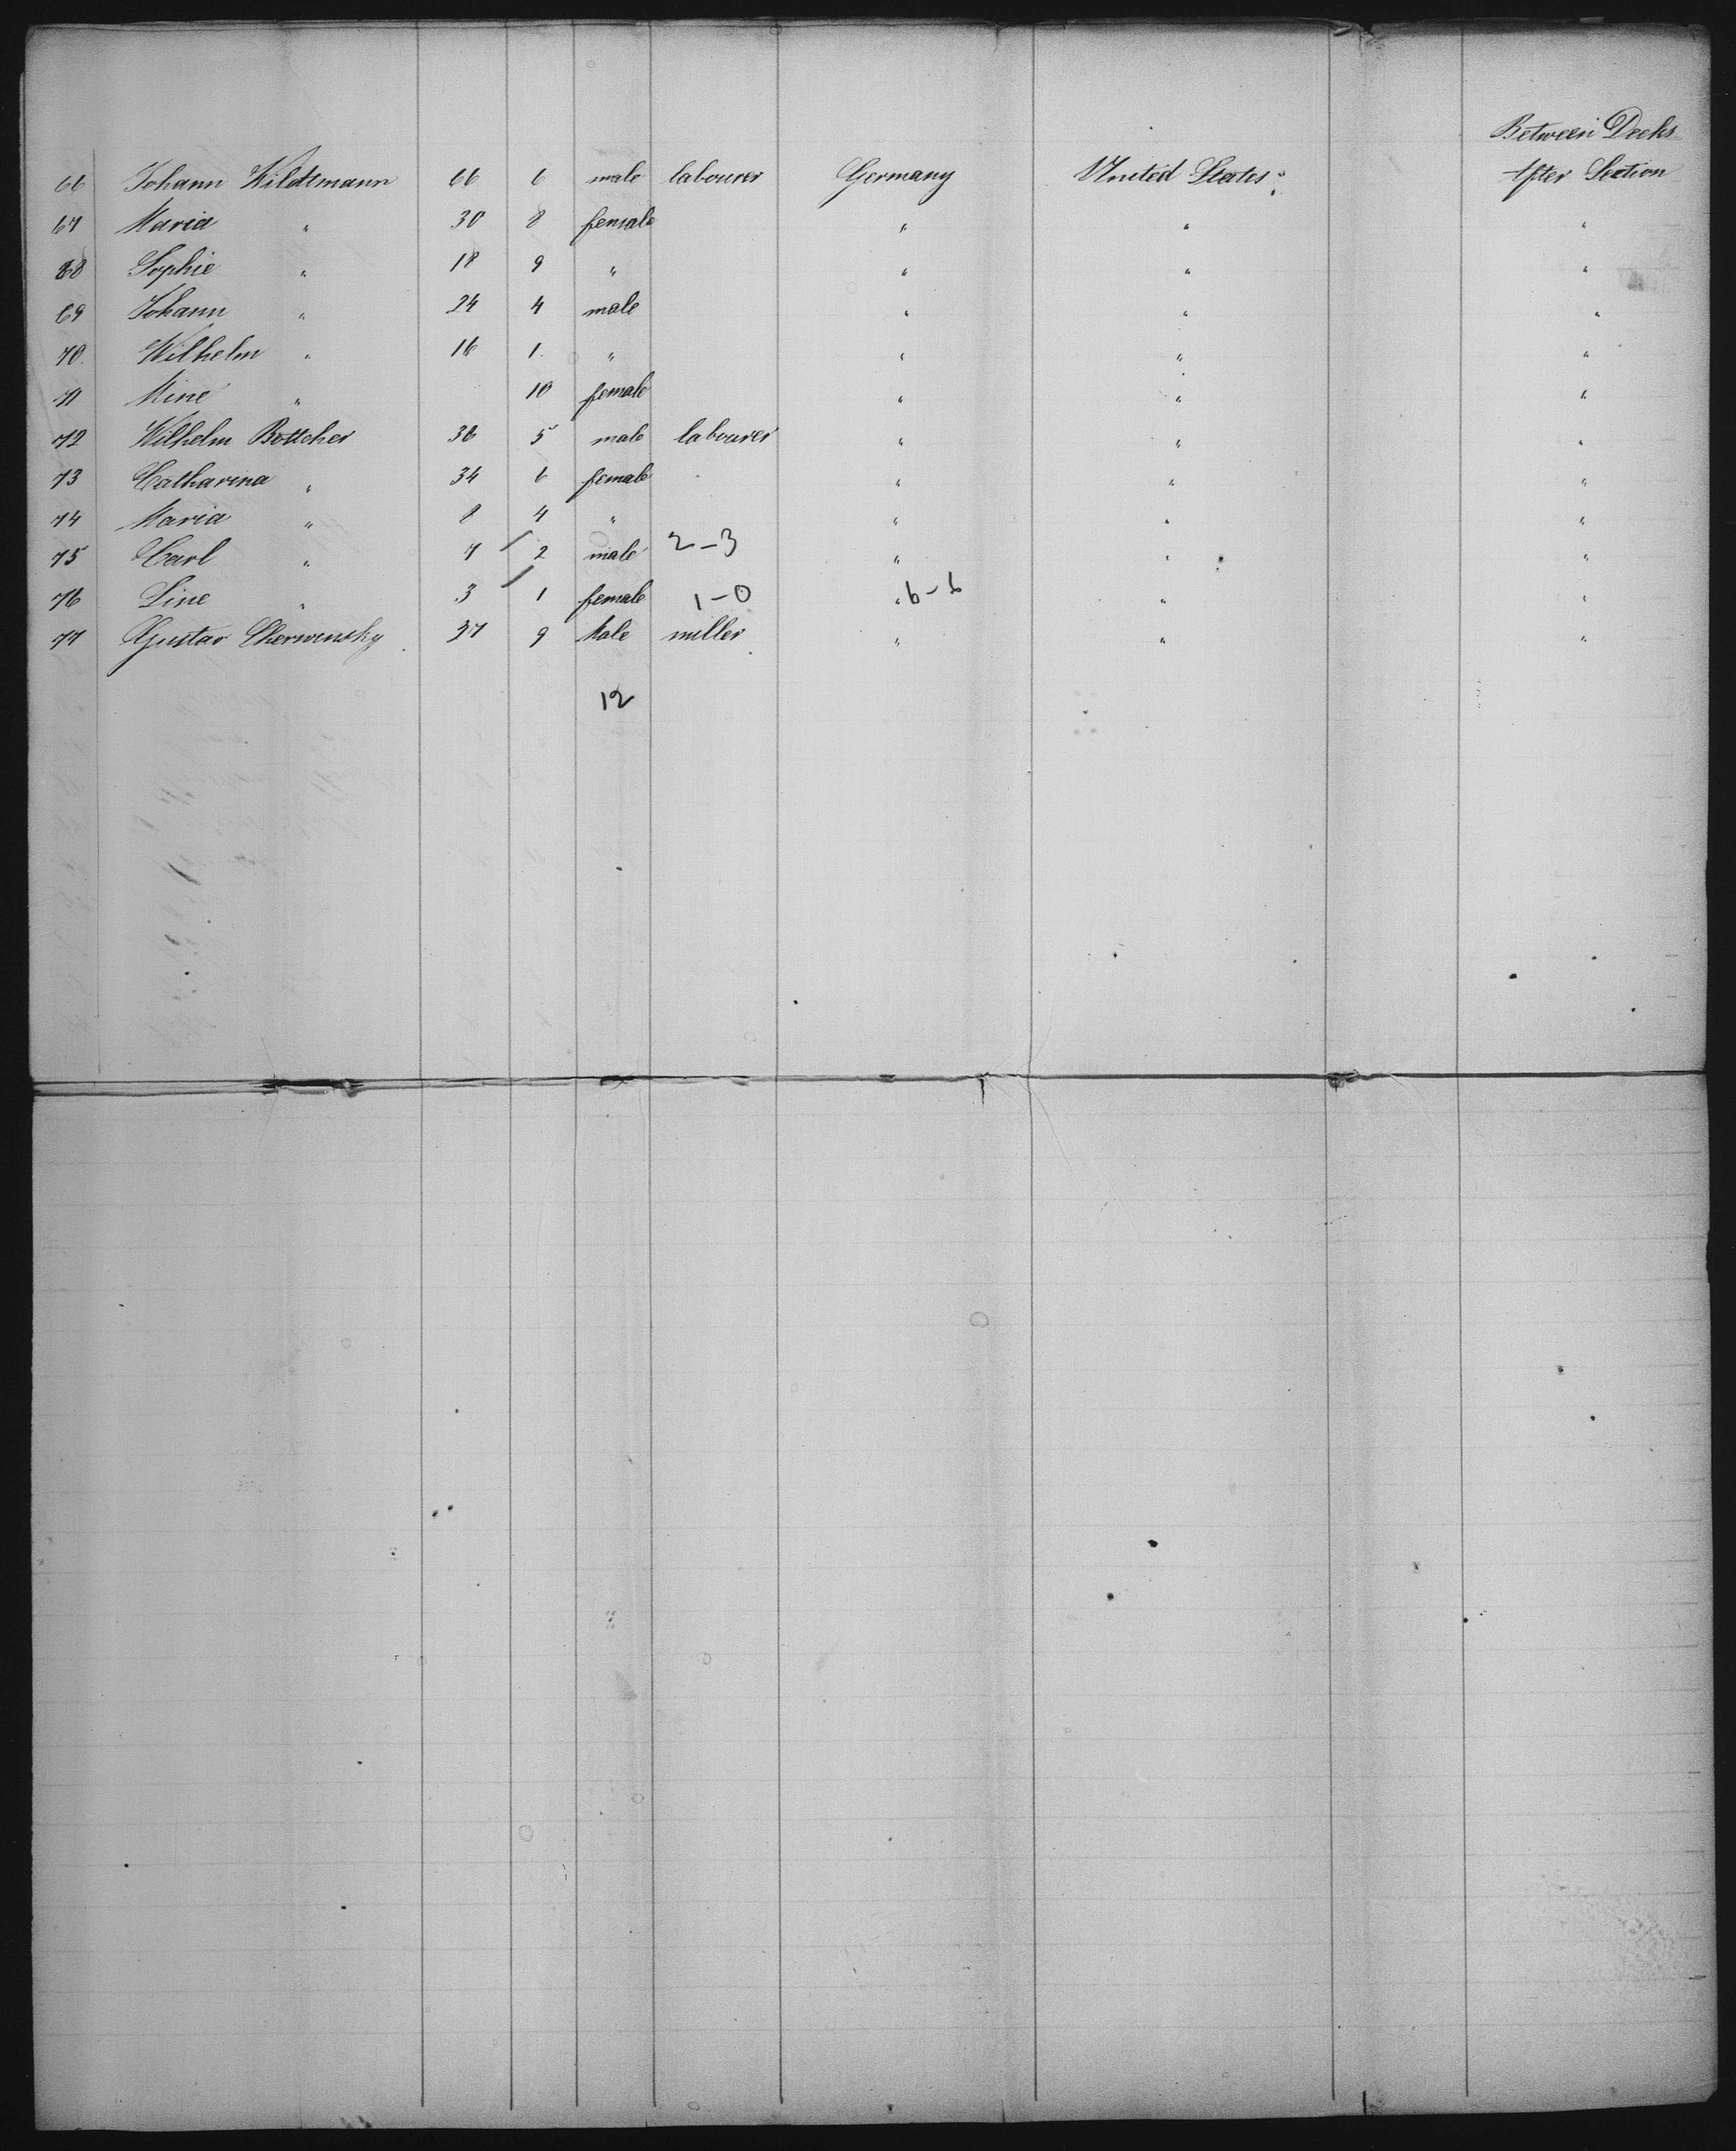 Between Decks
66 Johann Wildtmann 66 6 male labourer Germany United States After Section
67 Maria " 30 8 female " " "
68 Sophie " 18 9 " " " "
69 Johann " 24 4 male " " "
70. Wilhelm " 16 1. " " " "
71 Mine " 10 female " " "
72 Wilhelm Bottcher 36 5 male labourer " " "
73 Catharina " 34 6 female " " "
74 Maria " 8 4 " " " "
75 Carl " 7 / 2 male 2-3 " " "
76 Line " 3 / 1 female 1-0 " 6-6 " "
77 Gustav Cherwinsky 37 9 Male miller " " "
12